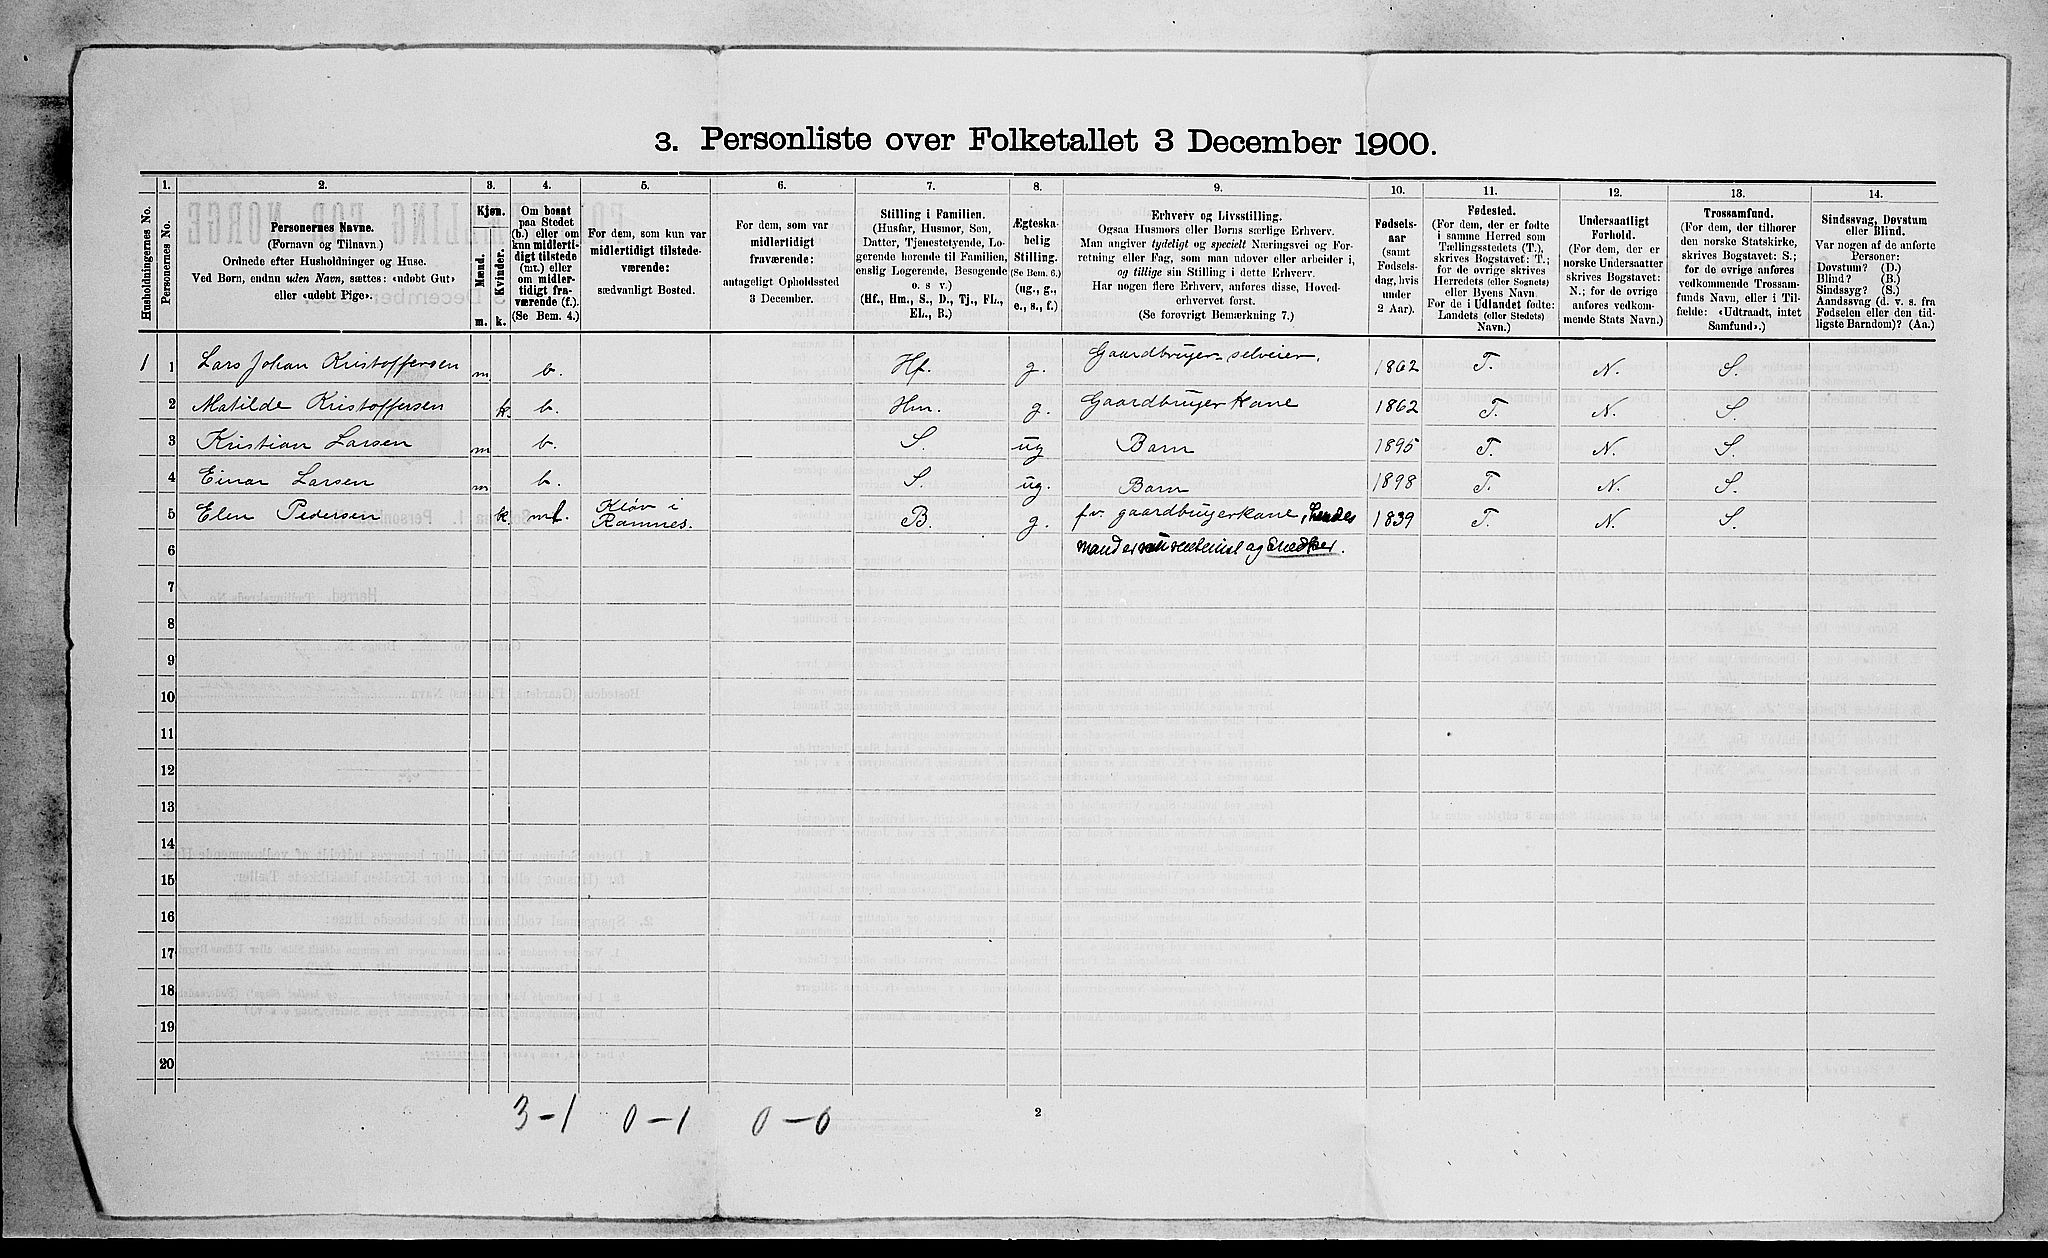 3. Personliste over Folketallet 3 December 1900.
Husholdningernes No.
1.
Personernes No.
2.
Personernes Navne.
(Fornavn og Tilnavn.)
Ordnede efter Husholdninger og Huse.
Ved Børn, endnu uden Navn, sættes: «udøbt Gut»
eller «udøbt Pige».
3.
Kjøn.
Mænd.
Kvinder.
m.
k.
4.
Om bosat
paa Stedet
(b.) eller om
kun midlerti-
digt tilstede
(mt.) eller
om midler-
tidigt fra-
værende (f.).
(Se Bem. 4.)
5.
For dem, som kun var
midlertidigt tilstede-
værende:
sædvanligt Bosted.
6.
For dem, som var
midlertidigt
fraværende:
antageligt Opholdssted
3 December.
7.
Stilling i Familien.
(Husfar, Husmor, Søn,
Datter, Tjenestetyende, Lo-
gerende hørende til Familien,
enslig Logerende, Besøgende
o. s v.)
(Hf., Hm., S., D., Tj., FL.,
EL., B.)
8.
Ægteska-
belig
Stilling.
(Se Bem. 6.)
(ug., g.,
e., s., f.)
9.
Erhverv og Livsstilling.
Ogsaa Husmors eller Børns særlige Erhverv.
Man angiver tydeligt og specielt Næringsvei og For-
retning eller Fag, som man udøver eller arbeider i,
og tillige sin Stilling i dette Erhverv.
Har nogen flere Erhverv, anføres disse, Hoved-
erhvervet først.
(Se forøvrigt Bemærkning 7.)
10.
Fødsels-
aar
(samt
Fødsels-
dag, hvis
under
2 Aar).
11.
Fødested.
(For dem, der er fødte
i samme Herred som
Tællingsstedets (T.),
skrives Bogstavet: T.;
for de øvrige skrives
Herredets (eller Sognets)
eller Byens Navn.
For de i Udlandet fødte:
Landets (eller Stedets)
Navn.)
12.
Undersaatligt
Forhold.
(For dem, der er
norske Undersaatter
skrives Bogstavet:
N.; for de øvrige
anføres vedkom-
mende Stats Navn.)
13.
Trossamfund.
(For dem, der tilhører
den norske Statskirke,
skrives Bogstavet: S.;
for de øvrige anføres
vedkommende Trossam-
funds Navn, eller i Til-
fælde: «Udtraadt, intet
Samfund».)
14.
Sindssvag, Døvstum
eller Blind.
Var nogen af de anførte
Personer:
Døvstum? (D.)
Blind? (B.)
Sindssyg? (S.)
Aandssvag (d. v. s. fra
Fødselen eller den tid-
ligste Barndom)? (Aa.)
1 1 Lars Johan Kristoffersen m b. Hf. g. Gaardbruger selveier. 1862 T. N. S.
2 Matilde Kristoffersen k. b. Hm. g. Gaardbrugerkone 1862 T. N. S.
3 Kristian Larsen m b. S. ug Barn 1895 T. N. S.
4 Einar Larsen m b. S. ug. Barn 1898 T. N. S.
5 Elen Pedersen k. mt. Kløv i Ramnes. B. g. fv. gaardbrugerkone, hendes 1839 T. N. S.
6 mand er
7
8
9
10
11
12
13
14
15
16
17
18
19
20
3-1 0-1 0-0
2